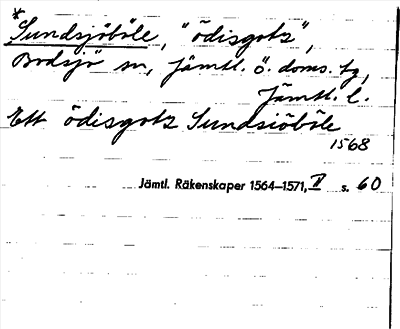 *
Sundsjöböle, "ödisgotz",
Bodsjö sn, Jämtl. ö. doms. tg,
Jämtl. l.
Ett ödisgotz Sundsiöböle
1568
Jämtl. Räkenskaper 1564–1571, II s. 60